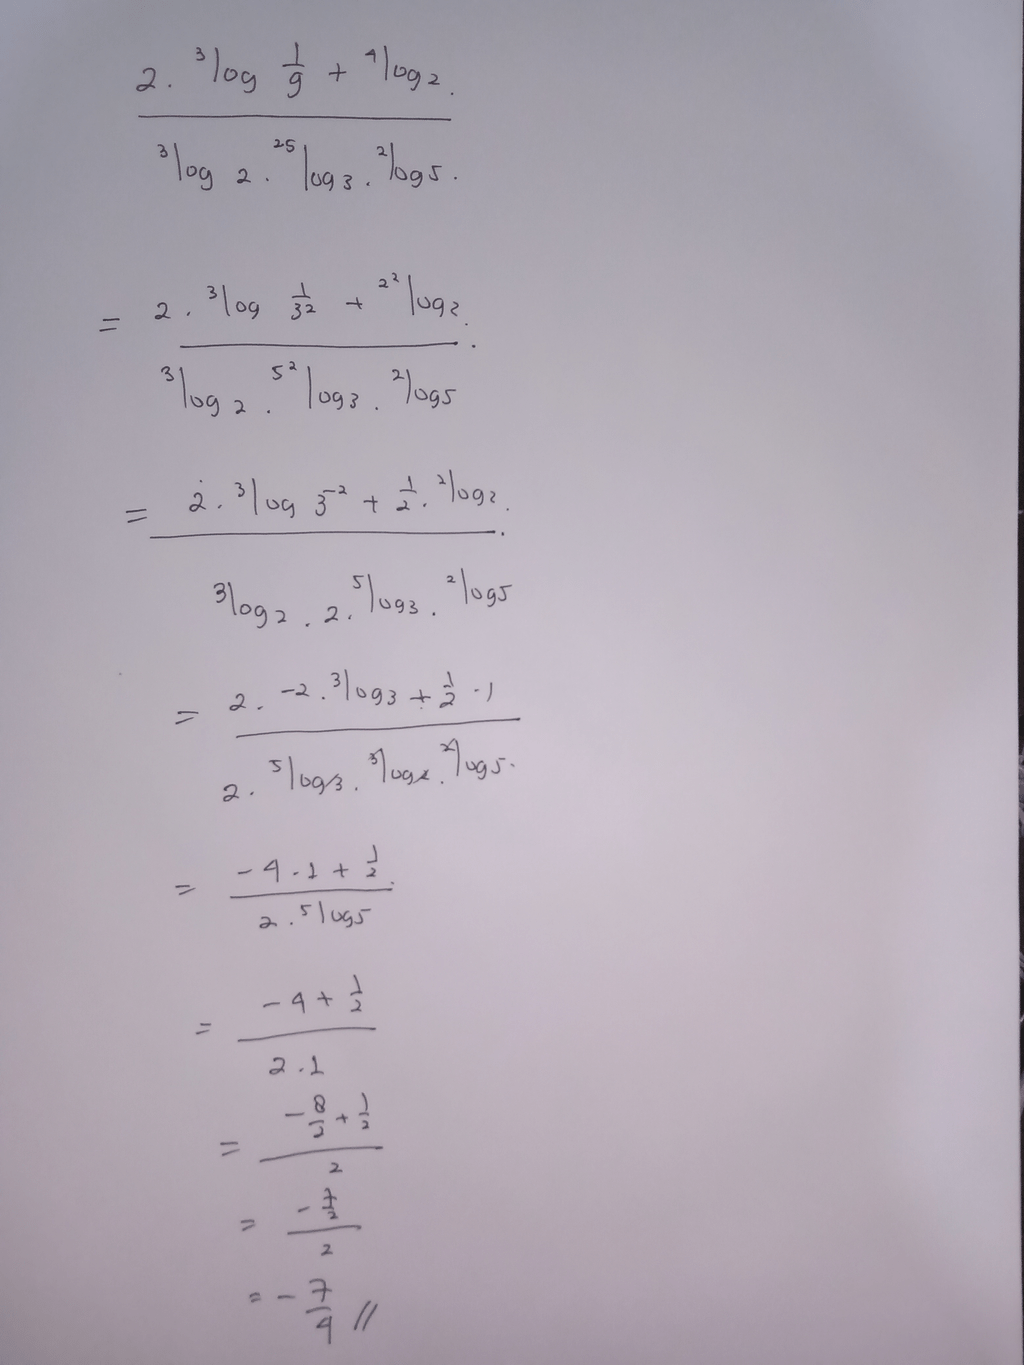 2. ³log 1/9 + ⁴log 2.
³log 2 . ²⁵log 3 . ²log 5.
= 2 . ³log 1/3² + 2²log 2.
³log 2 . 5²log 3 . ²log 5
= 2 . ³log 3⁻² + 1/2 . ²log 2.
³log 2 . 2 . ⁵log 3 . ²log 5
= 2 . -2 . ³log 3 + 1/2 . 1
2 . ⁵log 3 . ³log 2 . ²log 5.
= -4 . 1 + 1/2
2 . ⁵log 5
= -4 + 1/2
2 . 1
= -8/2 + 1/2
2
= -7/2
2
= -7/4 //